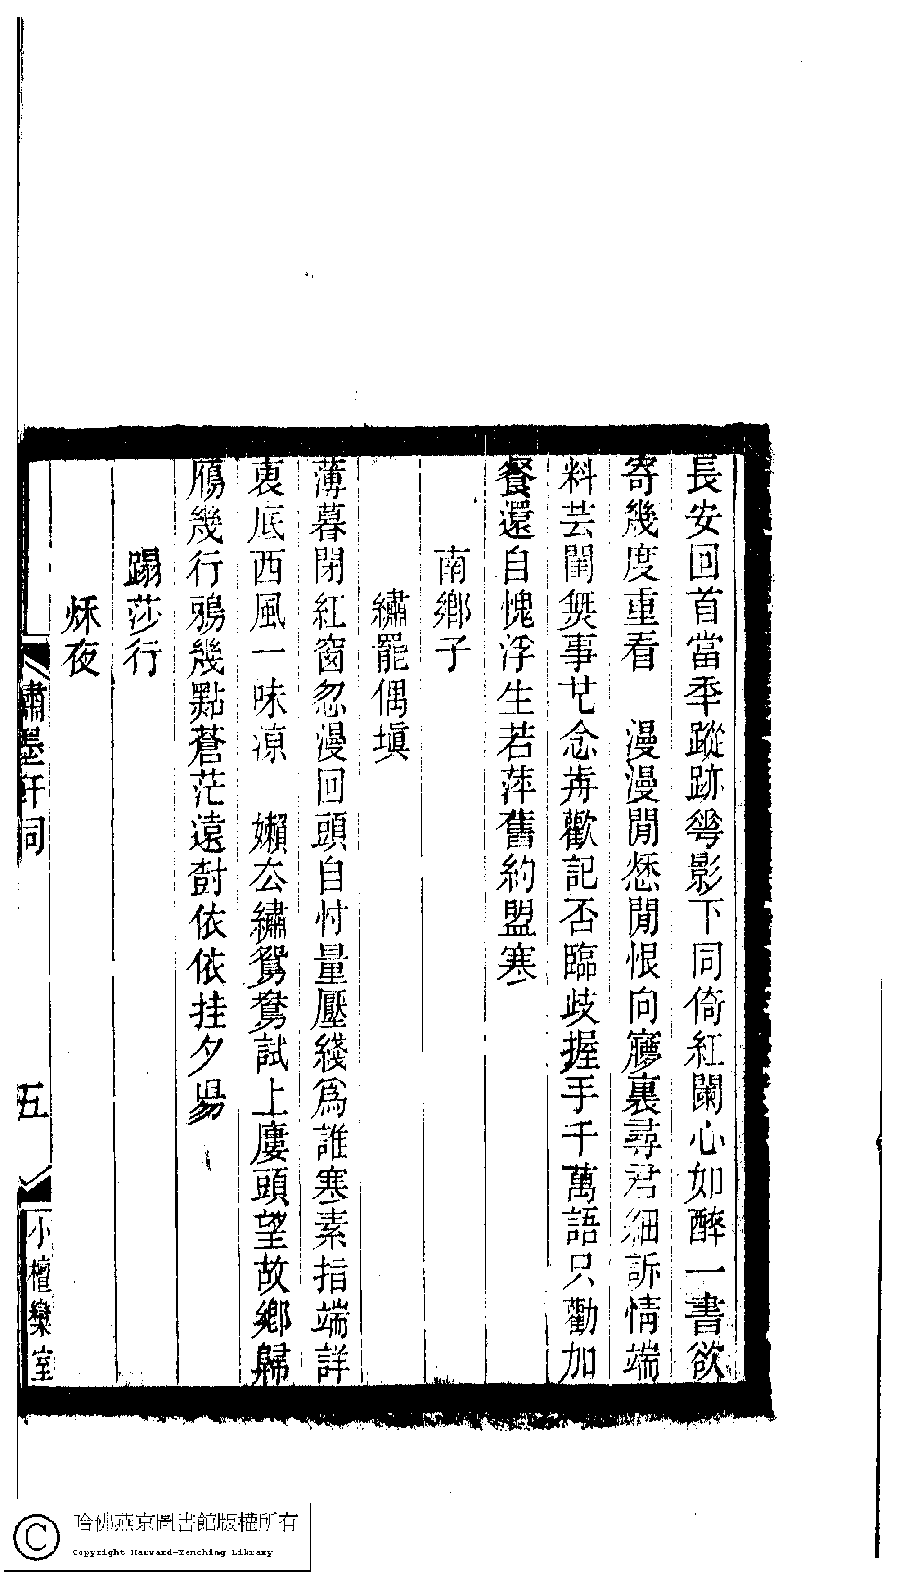 長安回首當年蹤跡蕚影下同倚紅闌心如醉一書欲
寄幾度重看　漫漫閒愁閒恨向廖裏尋君細訴情端
料芸閨無事也念歬歡記否臨歧握手千萬語只勸加
餐還自愧浮生若萍舊約盟寒
南鄉子
繡罷偶塡
薄暮閉紅窗忽漫回頭自忖量壓綫爲誰寒素指端詳
裏底西風一味凉　嬾去繡鴛鴦試上廔頭望故鄉歸
鴈幾行鴉幾點蒼茫遠尌依依挂夕昜
蹋莎行
秌夜
繡墨軒詞
五
小檀欒室
哈佛燕京圖書館版權所有
Copyright Harvard-Yenching Library